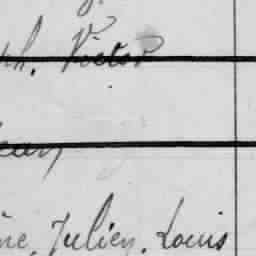 ph. Victor
ine, Julien, Louis